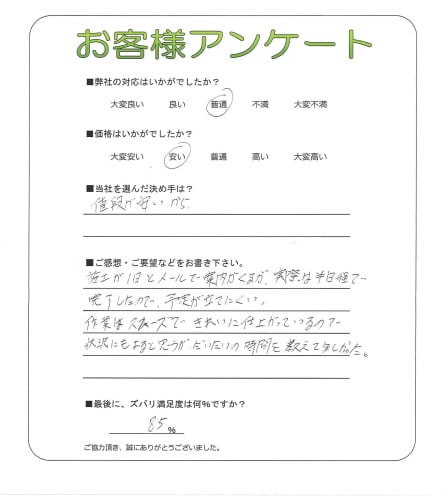 お客様アンケート
■弊社の対応はいかがでしたか?
大変良い 良い 普通 不満 大変不満
■価格はいかがでしたか?
大変安い 安い 普通 高い 大変高い
■当社を選んだ決め手は?
値段が安いから
■ご感想・ご要望などをお書き下さい。
施工が1日とメールで案内がくるが、実際は半日程で
完了したので、予定が立てにくい。
作業はスムーズで きれいに仕上がっているので
状況にもよると思うが だいたいの時間を教えてほしかった。
■最後に、ズバリ満足度は何%ですか?
85%
ご協力頂き、誠にありがとうございました。